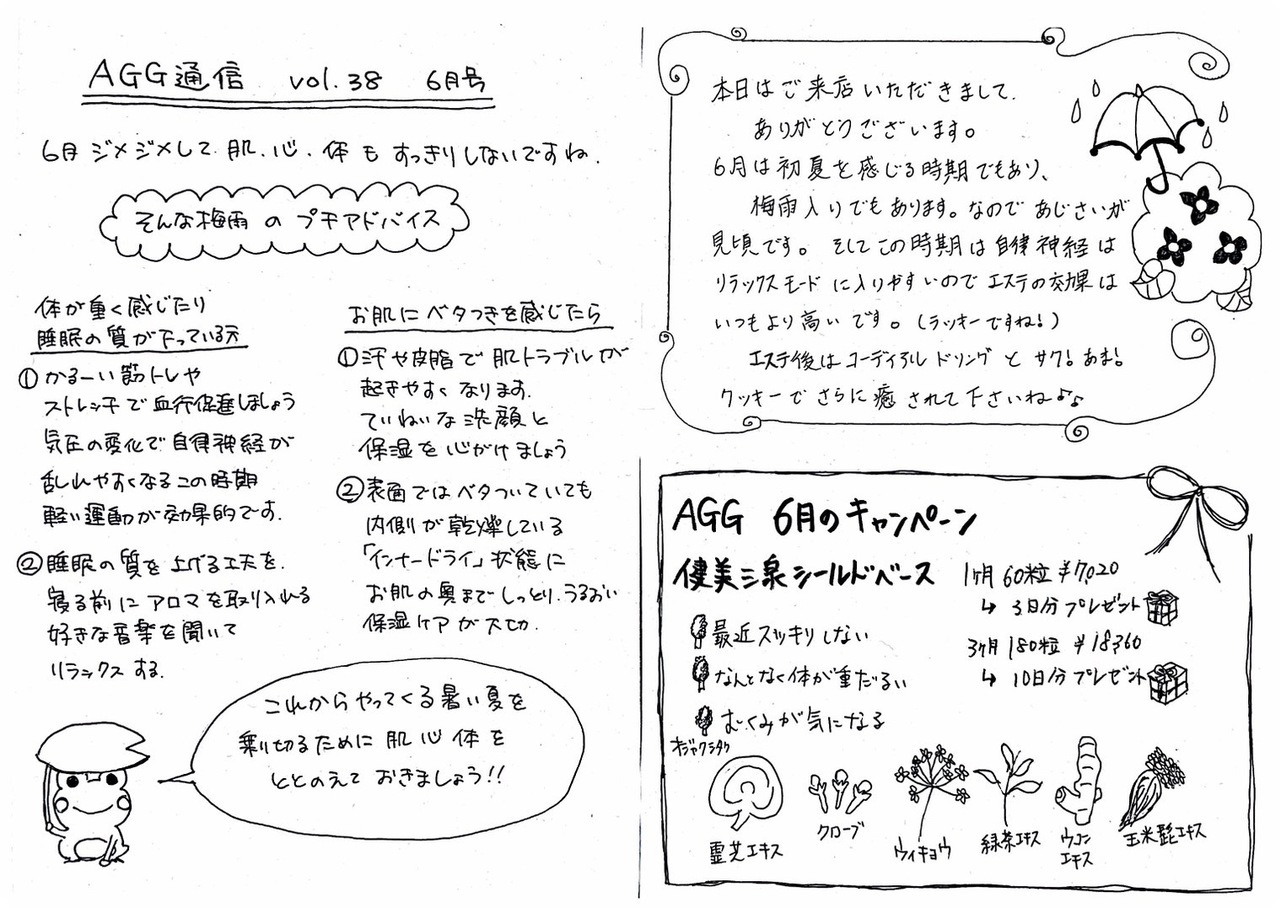 AGG通信 vol.38 6月号
6月 ジメジメして 肌、心、体も すっきりしないですね.
そんな梅雨 の プチアドバイス
体が重く感じたり
睡眠の質が下っている方
① かるーい筋トレや
ストレッチで血行促進しましょう
気圧の変化で自律神経が
乱れやすくなるこの時期
軽い運動が効果的です.
② 睡眠の質を上げる工夫を.
寝る前に アロマを取り入れる
好きな音楽を聞いて
リラックスする.
お肌にベタつきを感じたら
① 汗や皮脂で肌トラブルが
起きやすくなります.
ていねいな洗顔と
保湿を心がけましょう
② 表面ではベタついていても
内側が乾燥している
「インナードライ」状態に
お肌の奥までしっとり、うるおい
保湿ケアが大切.
これからやってくる暑い夏を
乗り切るために 肌 心 体を
ととのえて おきましょう!!
本日はご来店いただきまして、
ありがとうございます。
6月は初夏を感じる時期でもあり、
梅雨入りでもあります。なので あじさいが
見頃です。 そしてこの時期は自律神経は
リラックスモードに入りやすいので エステの効果は
いつもより高いです。(ラッキーですね!)
エステ後はコーディアルドリンクと サク!あま!
クッキーで さらに癒されて下さいね♪♪
AGG 6月のキャンペーン
健美三泉シールドベース
1ヶ月 60粒 ¥7,020
↳ 3日分プレゼント
3ヶ月 180粒 ¥18,360
↳ 10日分プレゼント
最近スッキリしない
なんとなく体が重だるい
むくみが気になる
霊芝エキス
クローブ
ウイキョウ
緑茶エキス
ウコン
エキス
玉米髭エキス